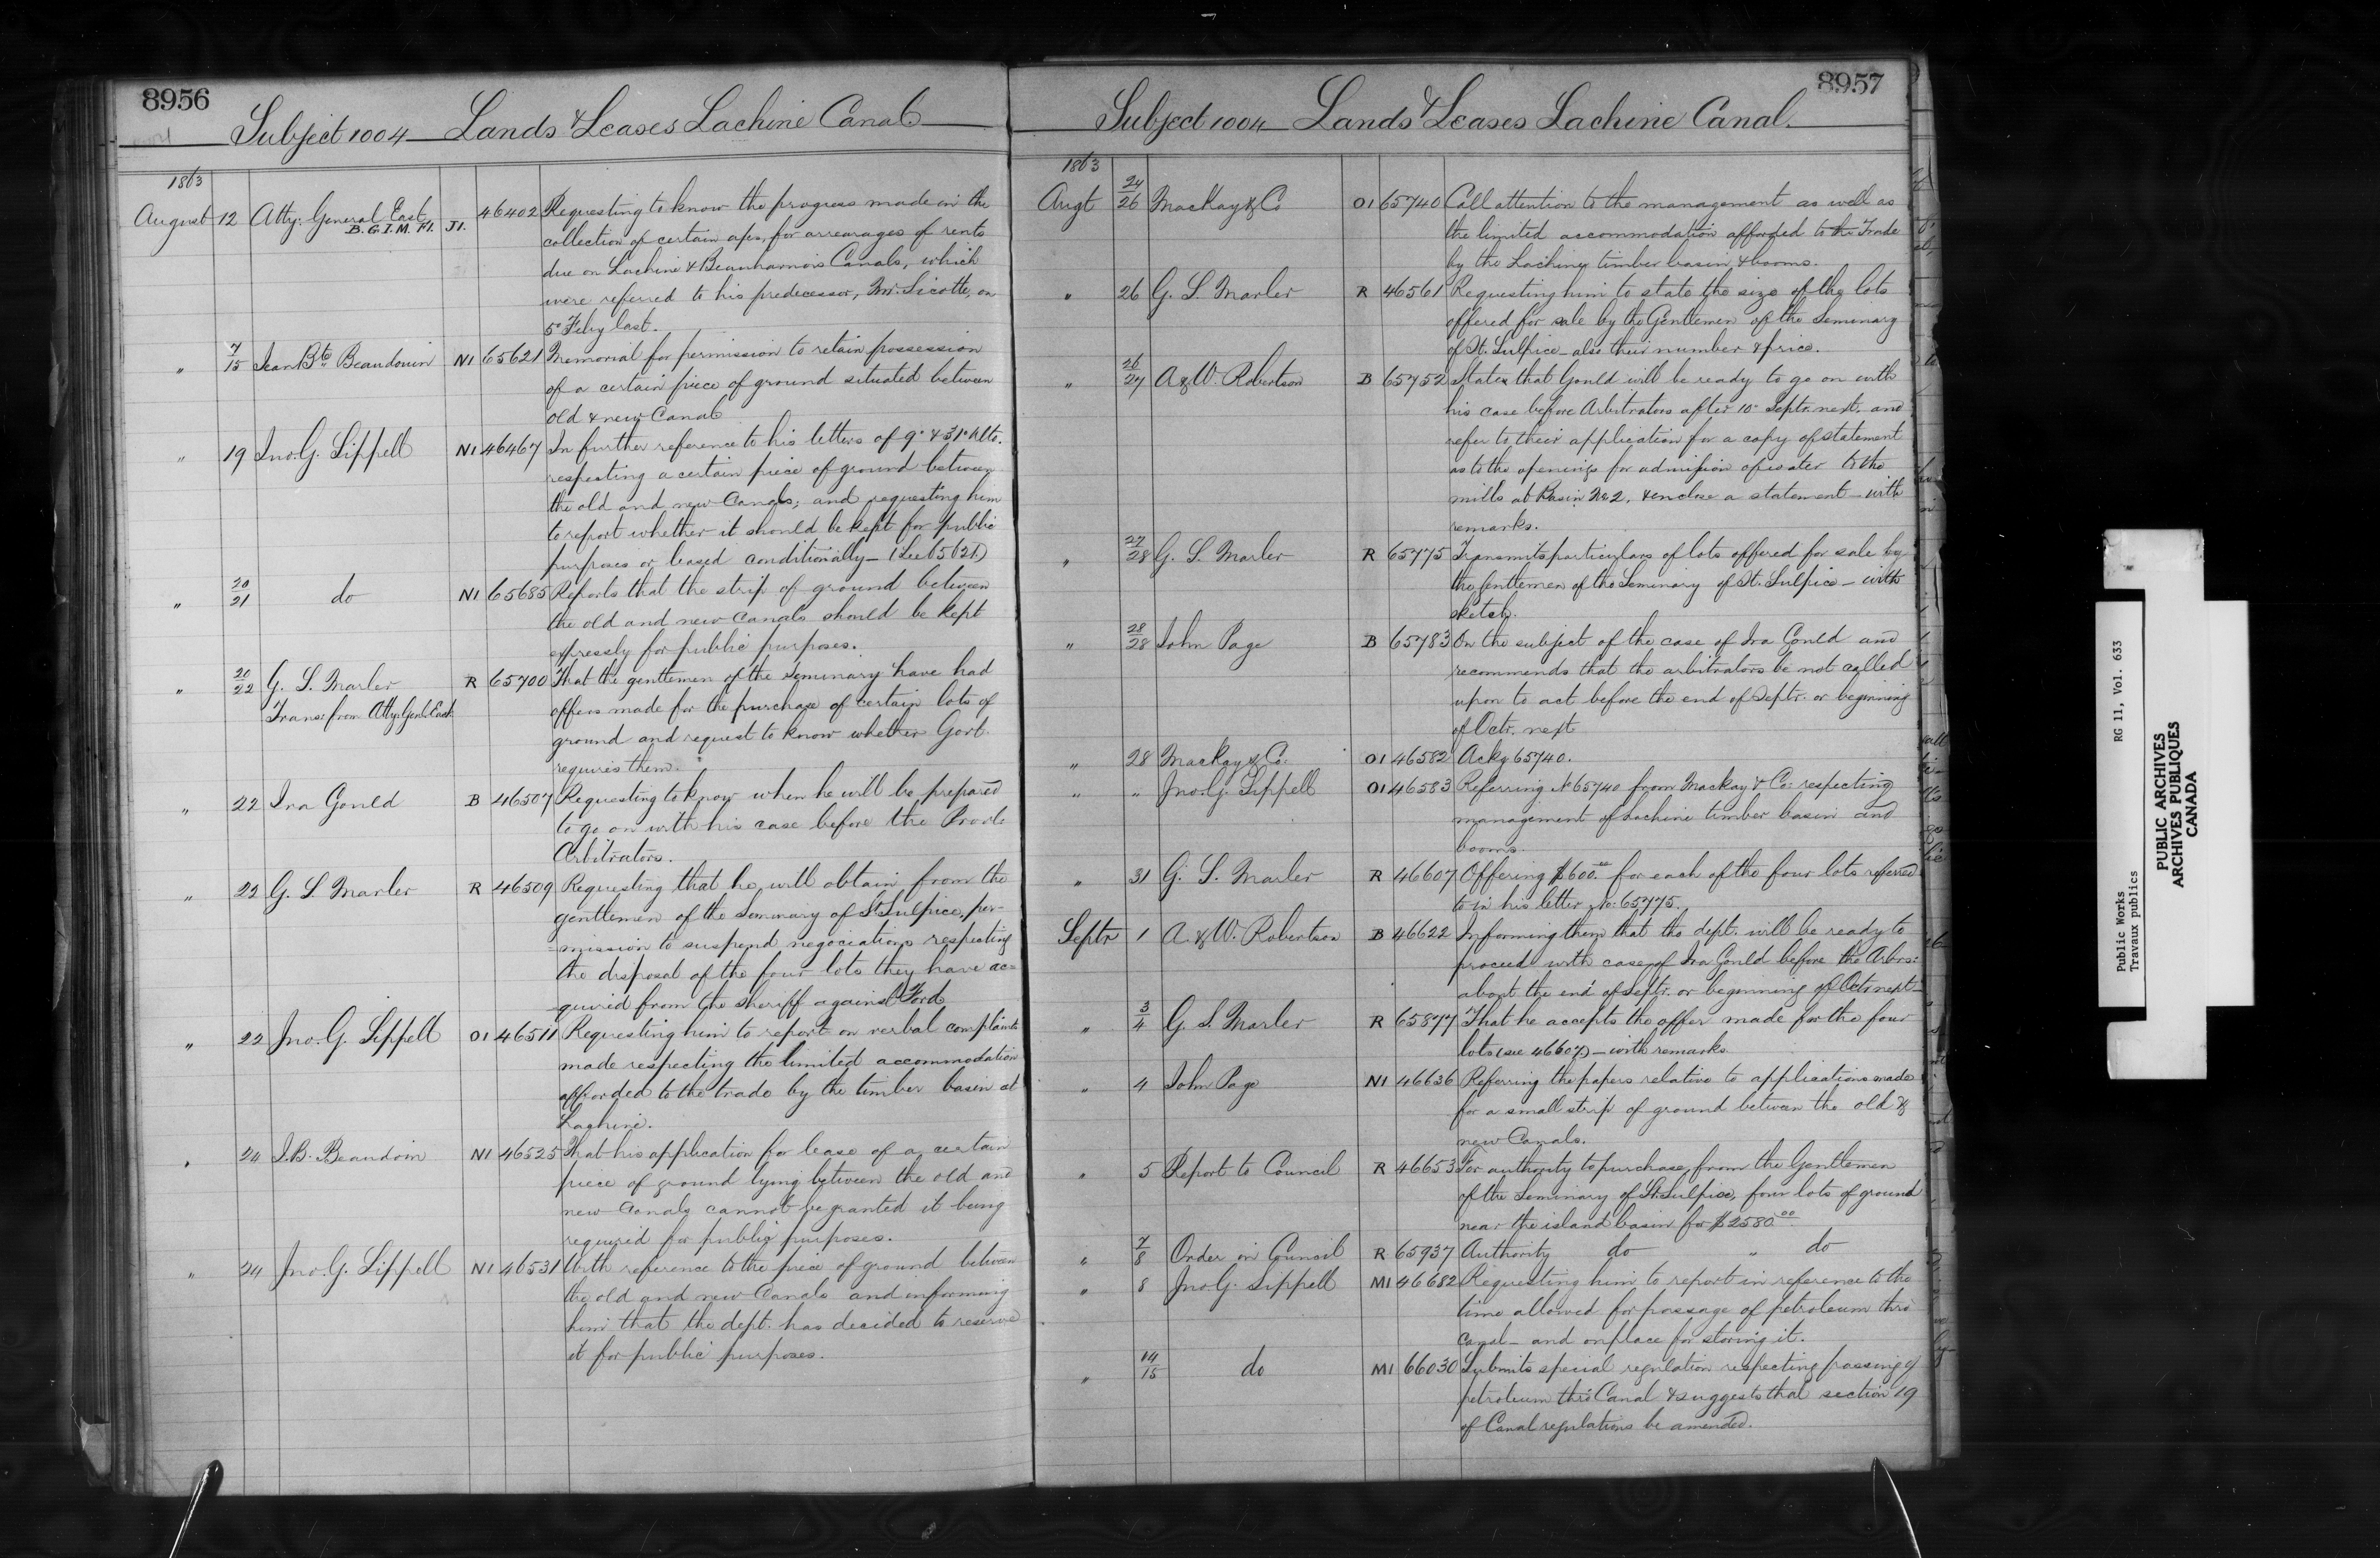 8956
Subject 1004 Lands & Leases Lachine Canal
1863
August 12 Atty. General East B.G.I.M. F1. J1. 46402 Requesting to know the progress made in the
collection of certain a/cs, for arrearages of rents
due on Lachine & Beauharnois Canals, which
were referred to his predecessor, Mr. Sicotte, on
5" Feby last.
" 7/15 Jean Bte Beaudouin N1 65621 Memorial for permission to retain possession
of a certain piece of ground situated between
old & new Canal
" 19 Jno. G. Sippell N1 46467 In further reference to his letters of 9" & 31" Ulto.
respecting a certain piece of ground between
the old and new Canals; and requesting him
to report whether it should be kept for public
purposes or leased conditionally – (See 65621)
" 20/21 do N1 65685 Reports that the strip of ground between
the old and new Canals should be kept
expressly for public purposes.
" 20/22 G. L. Marler R 65700 That the gentlemen of the Seminary have had
Trans: from Atty. Genl. East
offers made for the purchase of certain lots of
ground and request to know whether Govt.
requires them.
" 22 Ira Gould B 46507 Requesting to know when he will be prepared
to go on with his case before the Provl:
Arbitrators.
" 22 G. L. Marler R 46509 Requesting that he will obtain from the
gentlemen of the Seminary of St Sulpice, per-
=mission to suspend negociations respecting
the disposal of the four lots they have ac=
quired from the sheriff against Ford
" 22 Jno. G. Sippell O1 46511 Requesting him to report on verbal complaints
made respecting the limited accommodation
afforded to the trade by the timber basin at
Lachine.
" 24 J. B. Beaudoin N1 46525 That his application for lease of a certain
piece of ground lying between the old and
new Canals cannot be granted it being
required for public purposes.
" 24 Jno. G. Sippell N1 46531 With reference to the piece of ground between
the old and new Canals and informing
him that the dept. has decided to reserve
it for public purposes.
8957
Subject 1004 Lands & Leases Lachine Canal.
1863
Augt 24/26 Mackay & Co O1 65740 Call attention to the management as well as
the limited accommodation afforded to the Trade
by the Lachine timber basin & booms.
" 26 G. L. Marler R 46561 Requesting him to state the size of the lots
offered for sale by the Gentlemen of the Seminary
of St. Sulpice – also their number & price.
" 26/27 A & W. Robertson B 65752 States that Gould will be ready to go on with
his case before Arbitrators after 10" Septr. next, and
refer to their application for a copy of statement
as to the openings for admission of water to the
mills at Basin No 2, & enclose a statement – with
remarks.
" 27/28 G. L. Marler R 65775 Transmits particulars of lots offered for sale by
the Gentlemen of the Seminary of St. Sulpice – with
sketch.
" 28/28 John Page B 65783 On the subject of the case of Ira Gould and
recommends that the arbitrators be not called
upon to act before the end of Septr. or beginning
of Octr. next
" 28 Mackay & Co. O1 46582 Ackg 65740.
" " Jno. G. Sippell O1 46583 Referring No 65740 from Mackay & Co: respecting
management of Lachine timber basin and
booms.
" 31 G. L. Marler R 46607 Offering $600.00 for each of the four lots referred
to in his letter No. 65775.
Septr 1 A. & W. Robertson B 46622 Informing them that the dept. will be ready to
proceed with case of Ira Gould before the Arbrs:
about the end of Septr. or beginning of Octr. next –
" 3/4 G. L. Marler R 65877 That he accepts the offer made for the four
lots (see 46607) – with remarks
" 4 John Page N1 46636 Referring the papers relative to applications made
for a small strip of ground between the old &
new Canals.
" 5 Report to Council R 46653 For authority to purchase from the Gentlemen
of the Seminary of St. Sulpice, four lots of ground
near the island basin for $2580.00
" 7/8 Order in Council R 65937 Authority do " do
" 8 Jno. G. Sippell M1 46682 Requesting him to report in reference to the
time allowed for passage of petroleum thro'
Canal – and on place for storing it.
" 14/15 do M1 66030 Submits special regulation respecting passing of
petroleum thro' Canal & suggests that section 19
of Canal regulations be amended.
Public Works RG 11, Vol. 633
Travaux publics
PUBLIC ARCHIVES
ARCHIVES PUBLIQUES
CANADA